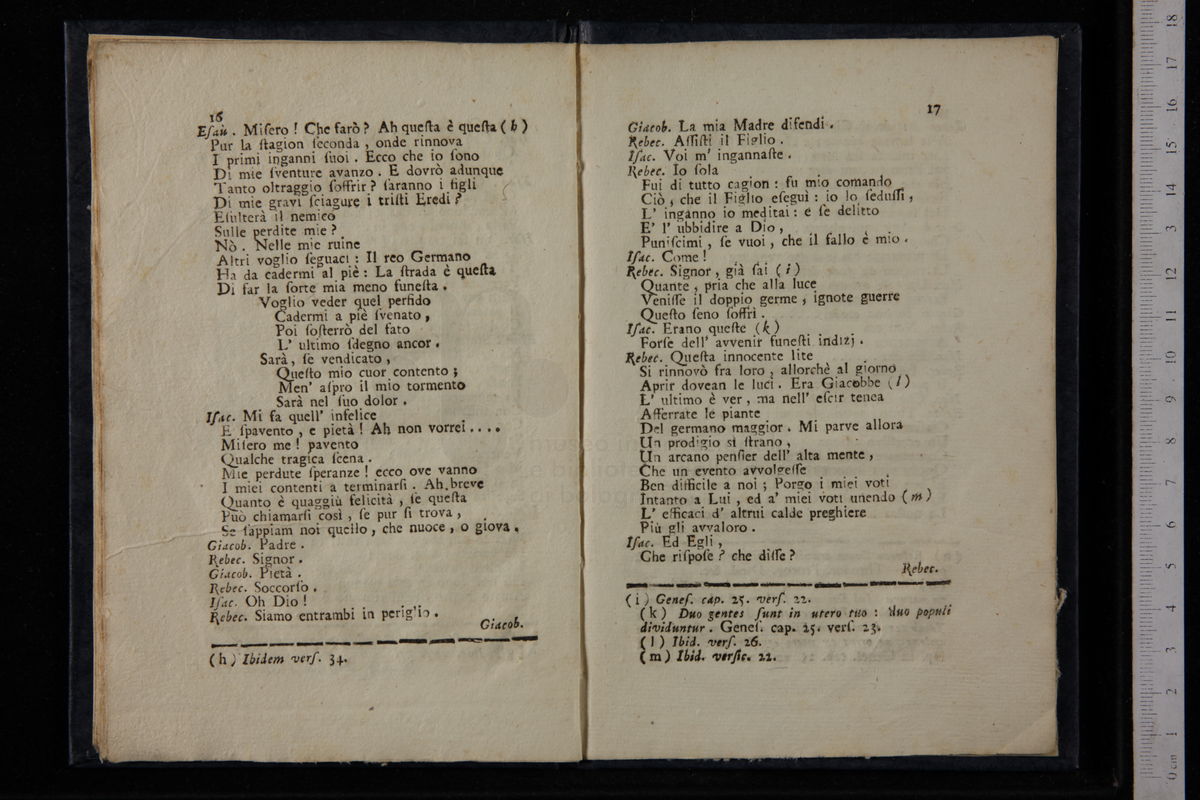 16
Eſaù. Miſero! Che farò? Ah queſta è queſta (h)
Pur la ſtagion ſeconda, onde rinnova
I primi inganni ſuoi. Ecco che io ſono
Di mie ſventure avanzo. E dovrò adunque
Tanto oltraggio ſoffrir? ſaranno i figli
Di mie gravi ſciagure i triſti Eredi?
Eſulterà il nemico
Sulle perdite mie?
Nò. Nelle mie ruine
Altri voglio ſeguaci: Il reo Germano
Ha da cadermi al piè: La ſtrada è queſta
Di far la ſorte mia meno funeſta.
Voglio veder quel perfido
Cadermi a piè ſvenato,
Poi ſoſterrò del fato
L' ultimo ſdegno ancor.
Sarà, ſe vendicato,
Queſto mio cuor contento;
Men' aſpro il mio tormento
Sarà nel ſuo dolor.
Iſac. Mi fa quell' infelice
E ſpavento, e pietà! Ah non vorrei....
Miſero me! pavento
Qualche tragica ſcena.
Mie perdute ſperanze! ecco ove vanno
I miei contenti a terminarſi. Ah breve
Quanto è quaggiù felicità, ſe queſta
Può chiamarſi così, ſe pur ſi trova,
Se ſappiam noi quello, che nuoce, o giova.
Giacob. Padre.
Rebec. Signor.
Giacob. Pietà.
Rebec. Soccorſo.
Iſac. Oh Dio!
Rebec. Siamo entrambi in periglio.
Giacob.
(h) Ibidem verſ. 34.
17
Giacob. La mia Madre difendi.
Rebec. Aſſiſti il Figlio.
Iſac. Voi m' ingannaſte.
Rebec. Io ſola
Fui di tutto cagion: fu mio comando
Ciò, che il Figlio eſeguì: io lo ſeduſſi,
L' inganno io meditai: e ſe delitto
E' l' ubbidire a Dio,
Puniſcimi, ſe vuoi, che il fallo è mio.
Iſac. Come!
Rebec. Signor, già ſai (i)
Quante, pria che alla luce
Veniſſe il doppio germe, ignote guerre
Queſto ſeno ſoffrì.
Iſac. Erano queſte (k)
Forſe dell' avvenir funeſti indizj.
Rebec. Queſta innocente lite
Si rinnovò fra loro, allorchè al giorno
Aprir dovean le luci. Era Giacobbe (l)
L' ultimo è ver, ma nell' eſcir tenea
Afferrate le piante
Del germano maggior. Mi parve allora
Un prodigio sì ſtrano,
Un arcano penſier dell' alta mente,
Che un evento avvolgeſſe
Ben difficile a noi; Porgo i miei voti
Intanto a Lui, ed a' miei voti unendo (m)
L' efficaci d' altrui calde preghiere
Più gli avvaloro.
Iſac. Ed Egli,
Che riſpoſe? che diſſe?
Rebec.
(i) Geneſ. cap. 25. verſ. 22.
(k) Duo gentes ſunt in utero tuo: duo populi
dividuntur. Geneſ. cap. 25. verſ. 23.
(l) Ibid. verſ. 26.
(m) Ibid. verſic. 22.
0 cm 1 2 3 4 5 6 7 8 9 10 11 12 13 14 15 16 17 18